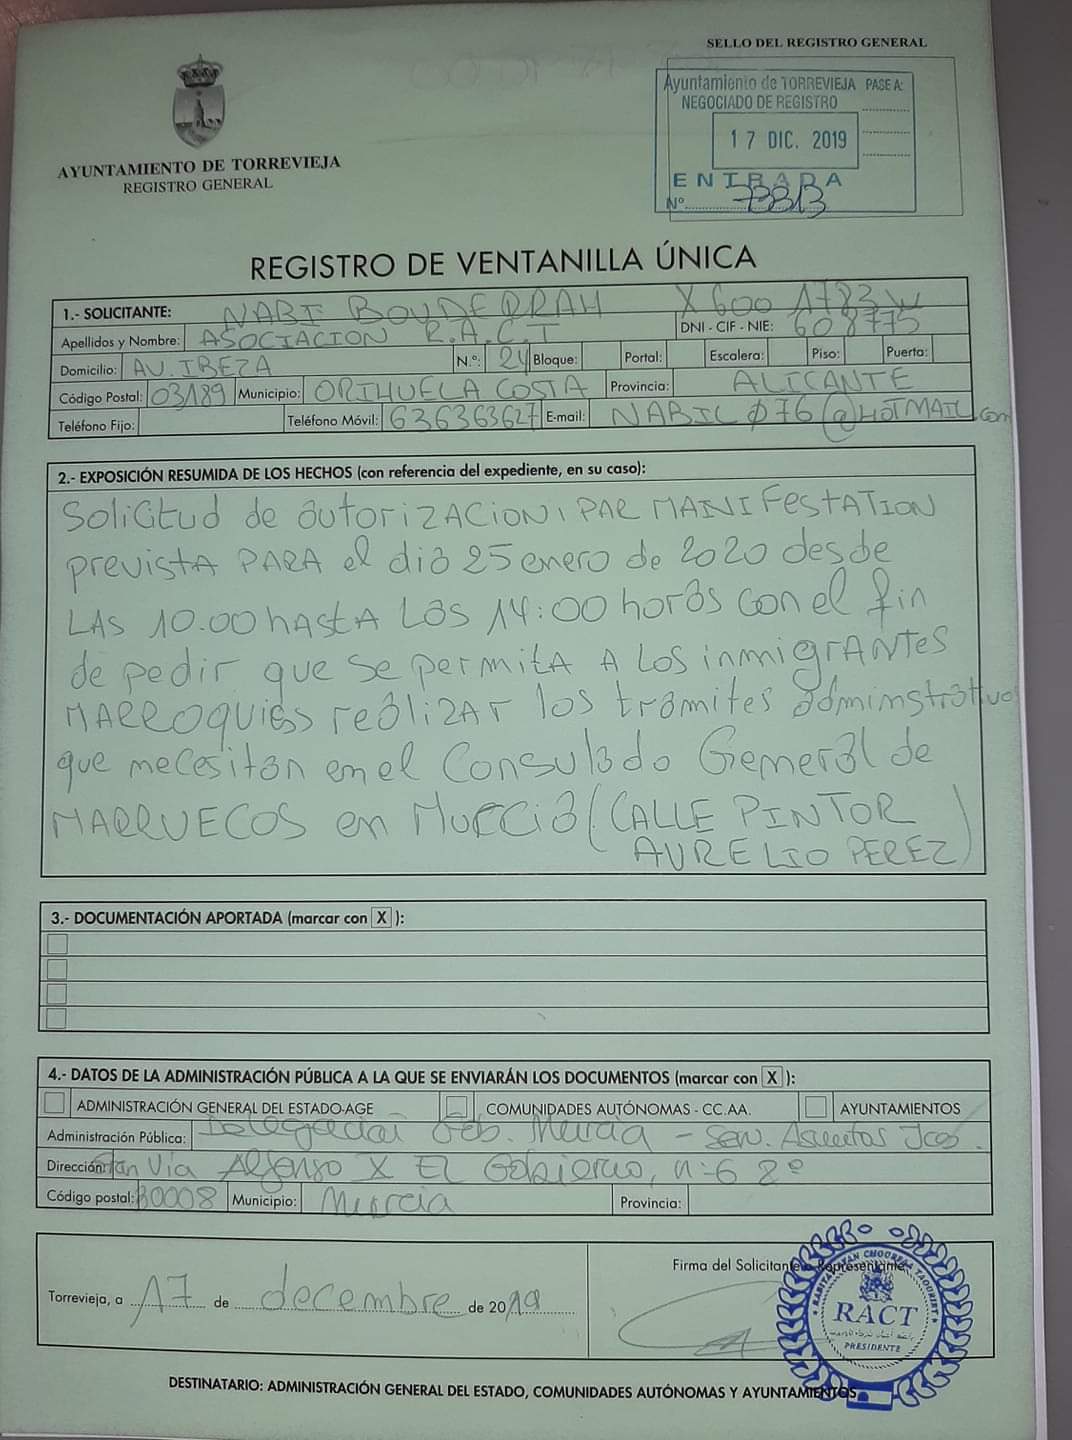 SELLO DEL REGISTRO GENERAL
Ayuntamiento de TORREVIEJA PASE A:
NEGOCIADO DE REGISTRO
17 DIC. 2019
ENTRADA
Nº
AYUNTAMIENTO DE TORREVIEJA
REGISTRO GENERAL
REGISTRO DE VENTANILLA ÚNICA
1.- SOLICITANTE: NABI BOUDERRAH X600 1783W
Apellidos y Nombre: ASOCIACION R.A.C.T DNI - CIF - NIE: 608775
Domicilio: AV. IBEZA N.º: 24 Bloque: Portal: Escalera: Piso: Puerta:
Código Postal: 03189 Municipio: ORIHUELA COSTA Provincia: ALICANTE
Teléfono Fijo: Teléfono Móvil: 636363627 E-mail: NABILØ76@HOTMAIL.com
2.- EXPOSICIÓN RESUMIDA DE LOS HECHOS (con referencia del expediente, en su caso):
Solicitud de autorizACION, PAR MANIFestATION
previstA PARA el dia 25 enero de 2020 desde
LAS 10.00 hastA Las 14:00 horas con el fin
de pedir que se permitA A Los inmigrANTes
MARROQUIES reâlizAr los tramites adminstrativo
que necesitan en el Consulado General de
MARRUECOS en Murcia (CALLE PINTOR
AURELIO PEREZ)
3.- DOCUMENTACIÓN APORTADA (marcar con X ):
4.- DATOS DE LA ADMINISTRACIÓN PÚBLICA A LA QUE SE ENVIARÁN LOS DOCUMENTOS (marcar con X ):
ADMINISTRACIÓN GENERAL DEL ESTADO-AGE COMUNIDADES AUTÓNOMAS - CC.AA. AYUNTAMIENTOS
Administración Pública: Delegación Gob. Murcia - Serv. Asuntos Jcos.
Dirección: Gran Vía Alfonso X El Gobierno, nº6 2º
Código postal: 30008 Municipio: Murcia Provincia:
Firma del Solicitante o Representante
Torrevieja, a 17 de decembre de 2019
RABITAT CHORFAA TAOURIRT
RACT
PRESIDENTE
DESTINATARIO: ADMINISTRACIÓN GENERAL DEL ESTADO, COMUNIDADES AUTÓNOMAS Y AYUNTAMIENTOS